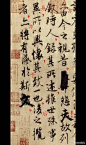 由今之視昔悲夫故列
敘時人錄其所述雖世殊事
異所以興懷其致一也後之攬
者亦將有感於斯文